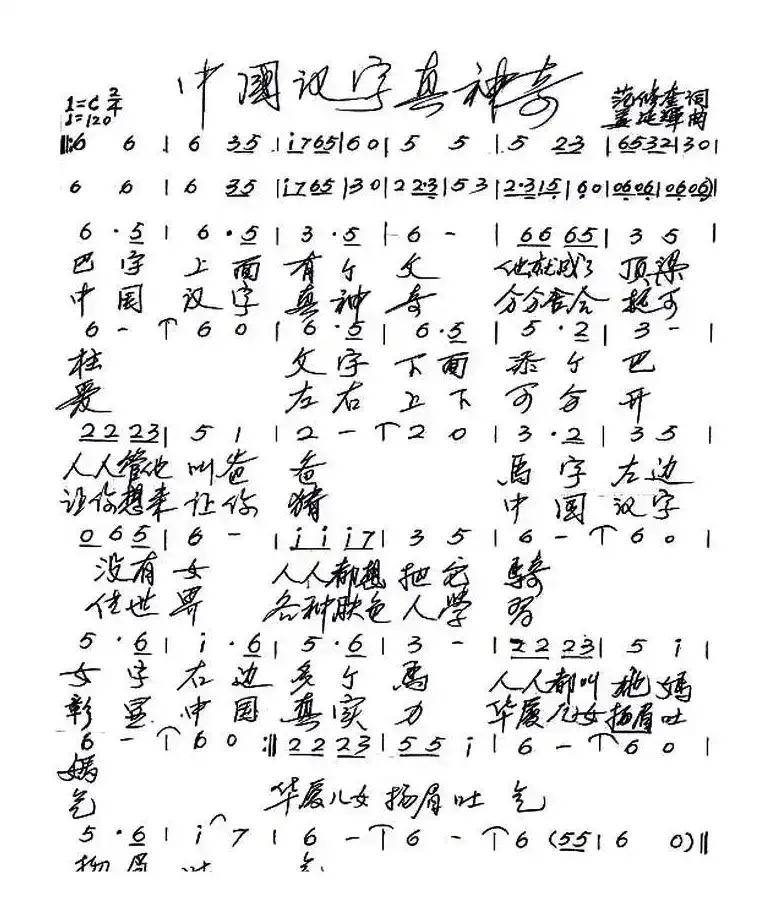 中國汉字真神奇
1=C 2/4
♩=120
范修奎词
孟延辉曲
‖:6 6 | 6 35 | i765 | 60 | 5 5 | 5 23 | 6532 | 30 |
6 6 | 6 35 | i765 | 30 | 22·3 | 53 | 2·315 | 60 | 0606 | 0606)‖
6·5 | 6·5 | 3·5 | 6 - | 6665 | 3 5 |
巴字 上面 有个父 他就成了 顶梁
中国 汉字 真神奇 分分合合 挺可
6 - | 6 0 | 6·5 | 6·5 | 5·2 | 3 - |
柱 父字 下面 添个巴
爱 左右 上下 可分开
2223 | 5 1 | 2 - | 2 0 | 3·2 | 3 5 |
人人管他 叫爸爸 馬字左边
让你想来 让你猜 中国汉字
065 | 6 - | iii7 | 3 5 | 6 - | 6 0 |
没有女 人人都想 把它騎
传世界 各种肤色 人学习
5·6 | i·6 | 5·6 | 3 - | 2223 | 5 i |
女字 右边 多个馬 人人都叫 她媽
彰显 中国 真实力 华厦儿女 扬眉吐
6 - | 6 0 :‖ 2223 | 55i | 6 - | 6 0 |
媽
气 华厦儿女 扬眉吐气
5·6 | i 7 | 6 - | 6 - | 6 (55 | 6 0)‖
扬眉 吐 气